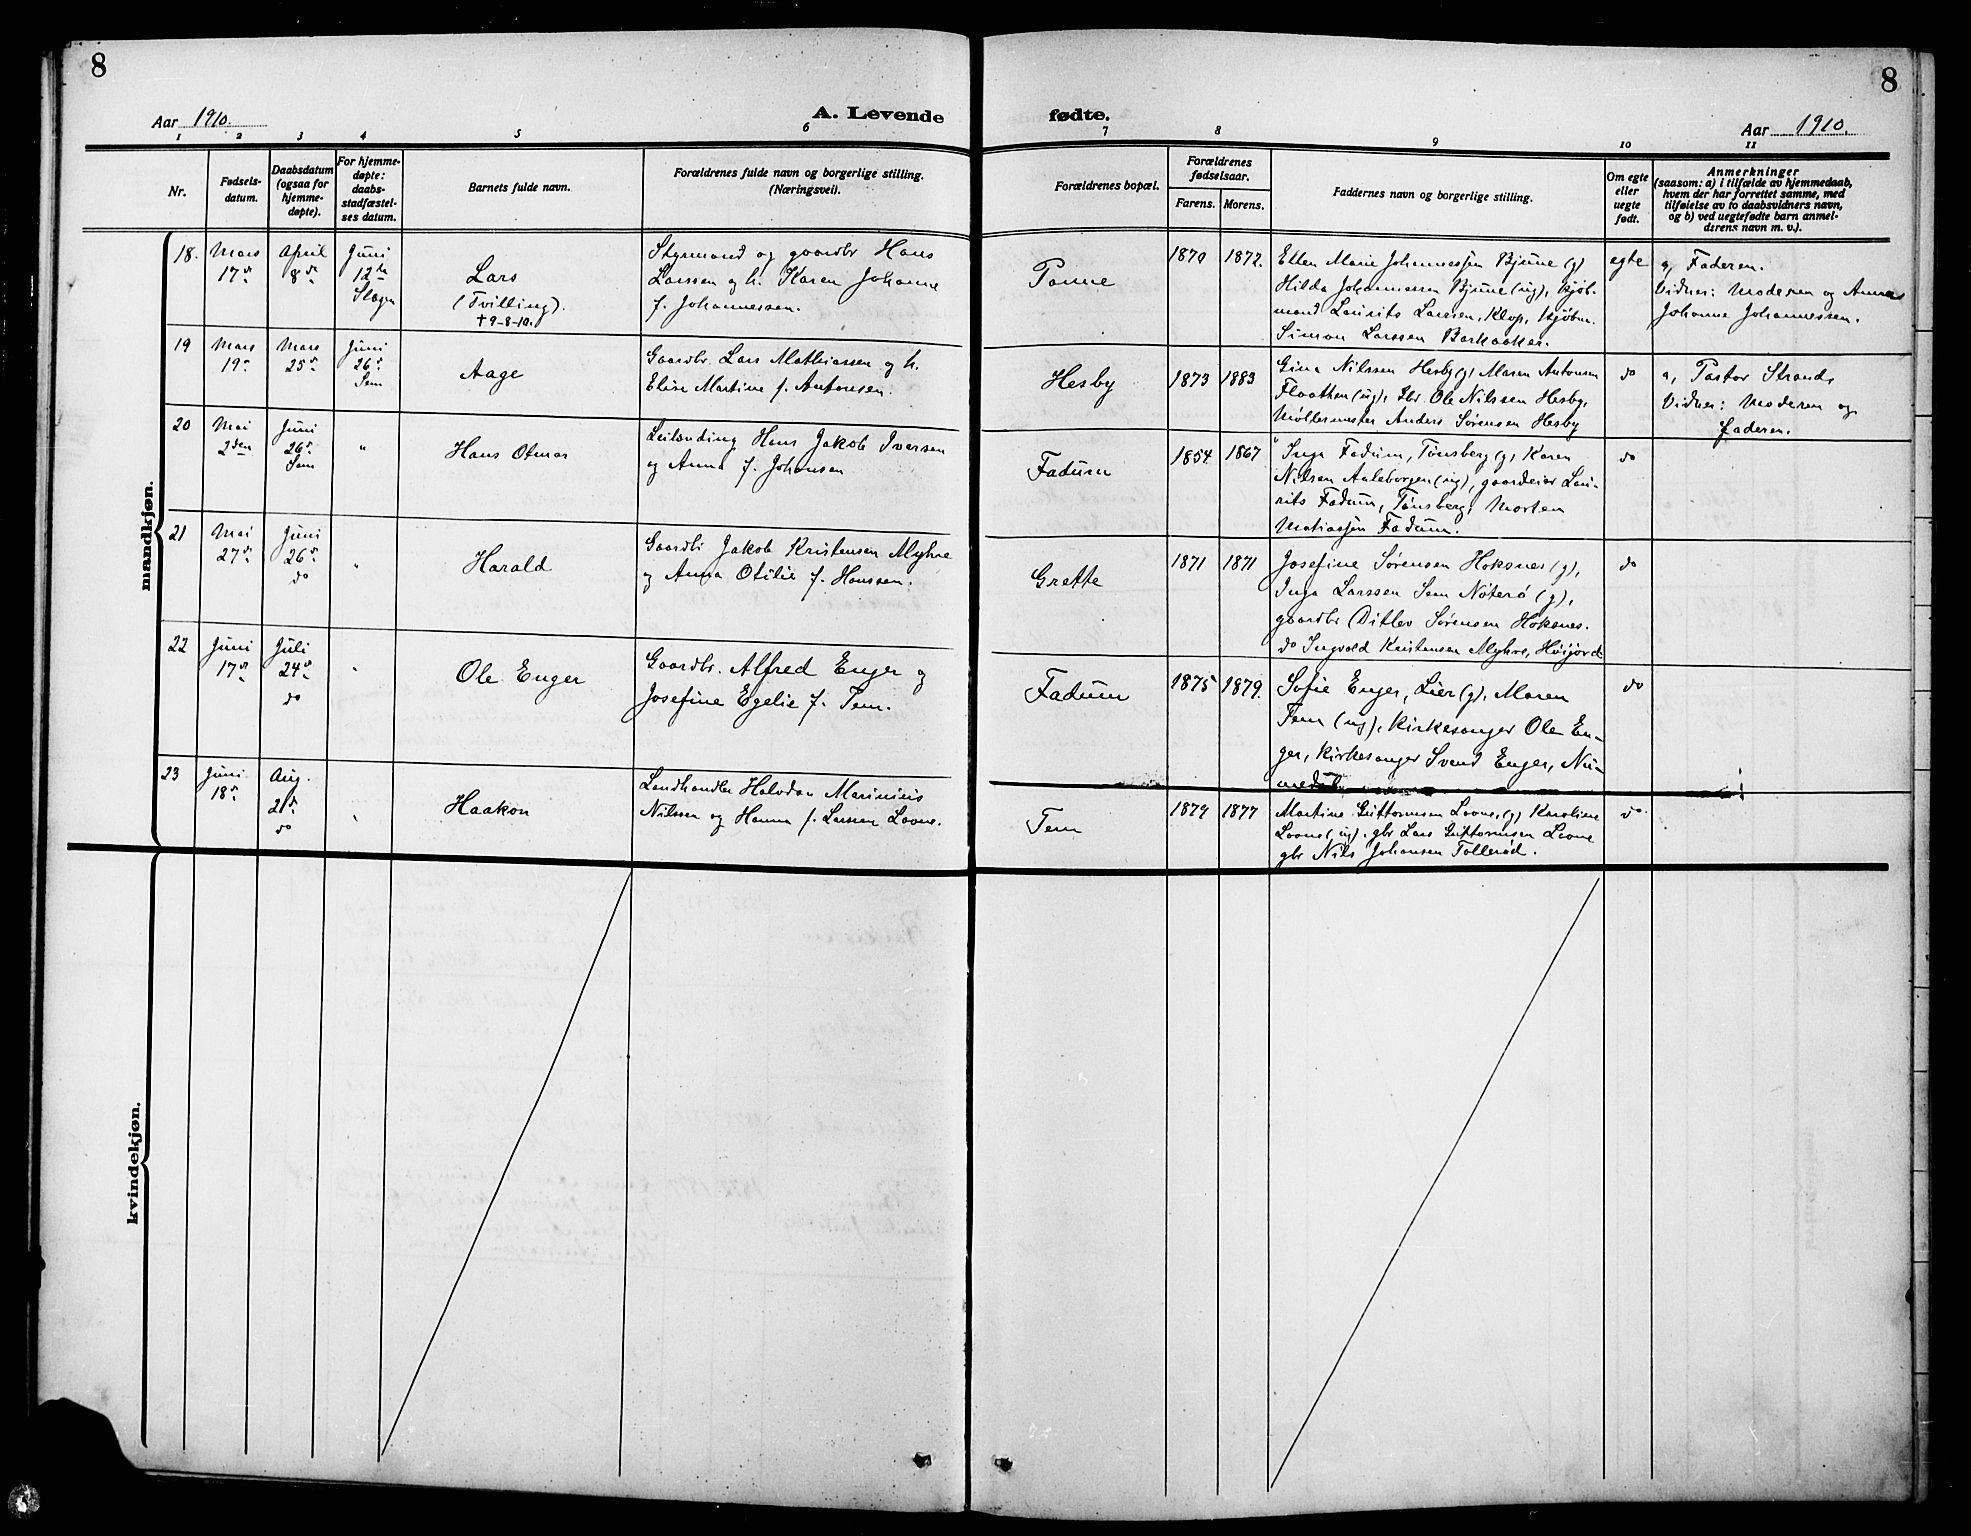 8
8
Aar 1910.
A. Levende
fødte.
Aar 1910.
1 2 3 4 5 6 7 8 9 10 11
Nr.
Fødsels-
datum.
Daabsdatum
(ogsaa for
hjemme-
døpte).
For hjemme-
døpte:
daabs-
stadfæstel-
ses datum.
Barnets fulde navn.
Forældrenes fulde navn og borgerlige stilling.
(Næringsvei).
Forældrenes bopæl.
Forældrenes
fødselsaar.
Farens. Morens.
Faddernes navn og borgerlige stilling.
Om egte
eller
uegte
født.
Anmerkninger
(saasom: a) i tilfælde av hjemmedaab,
hvem der har forrettet samme, med
tilføielse av to daabsvidners navn,
og b) ved uegtefødte barn anmel-
derens navn m. v.).
mandkjøn.
18.
Mars
17de
April
8de
Juni
12te
Slagen
Lars
(Tvilling).
†9-8-10.
Styrmand og gaardbr Hans
Larssen og h. Karen Johanne
f. Johannessen.
1870 1872.
Ellen Marie Johannessen Bjune (g)
Hilda Johannessen Bjune (ug), kjøb-
mand Laurits Larssen, Klop, kjøbm.
Simon Larssen Barkaaker.
egte
a, Faderen.
Vidner: Moderen og Anna
Johanne Johannessen.
19
Mars
19de
Mars
25de
Juni
26de
Sem
Aage
Gaardbr. Lars Mathiassen og h.
Elise Martine f. Antonsen.
Hesby
1873 1883
Gina Nilssen Hesby (g) Maren Antonsen
Flaathen (ug), Gbr. Ole Nilssen Hesby,
Møllermester Anders Sørensen Hesby
do
a, Pastor Strand
Vidner: Moderen og
Faderen.
20
Mai
2den
Juni
26de
Sem
"
Hans Otmar
Leilending Hans Jakob Iversen
og Anna f. Johansen
Fadum
1854 1867
Inga Fadum, Tønsberg (g) Karen
Nilsen Auleborgen (ug), gaardeier Lau-
rits Fadum, Tønsberg, Morten
Matiassen Fadum.
do
21
Mai
27de
Juni
26de
do
"
Harald
Gaardbr Jakob Kristensen Myhre
og Anna Otilie f. Hanssen.
Grette
1871 1871
Josefine Sørensen Hoksnes (g),
Inga Larssen Sem Nøterø (g),
gaardbr Ditlev Sørensen Hoksnes.
do Ingvald Kristensen Myhre, Høijord
do
22
Juni
17de
Juli
24de
do
"
Ole Enger
Gaardbr. Alfred Enger og
Josefine Egelie f. Tem.
Fadum
1875 1879.
Sofie Enger, Lier (g), Maren
Tem (ug), kirkesanger Ole En-
ger, kirkesanger Svend Enger, Nu-
medal
do
23
Juni
18de
Aug.
21de
do
"
Haakon
Landhandler Halvdan Marinius
Nilssen og Hanna f. Larssen Lovne.
Tem
1879 1877
Martine Guttormsen Lovne, (g) Karoline
Lovne (ug). gbr Lars Guttormsen Lovne
gbr Nils Johansen Tollerød.
do
kvindekjøn.